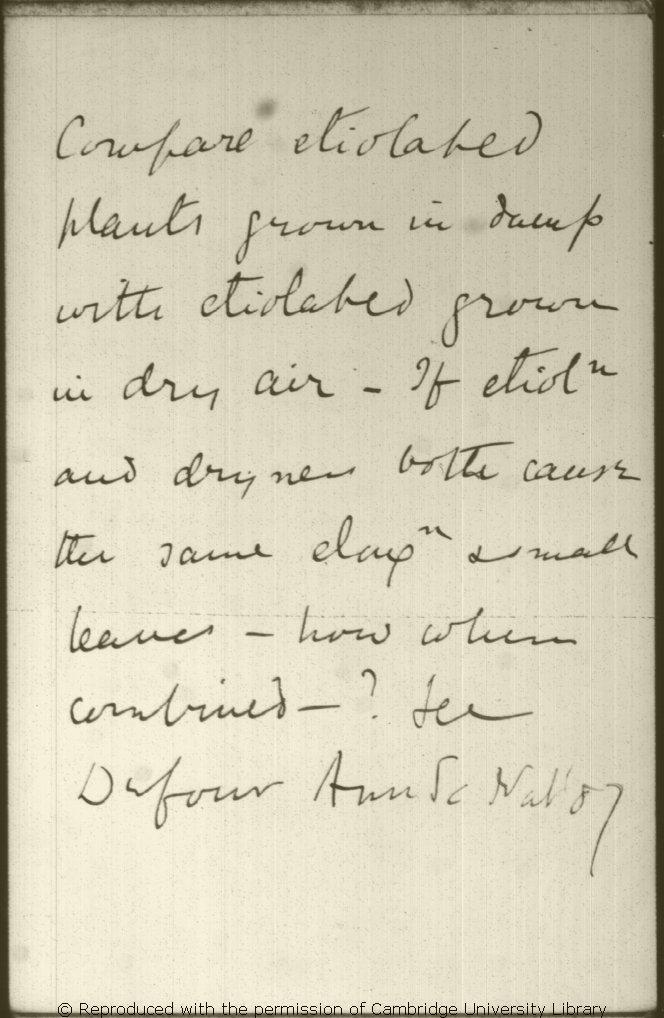 Compare etiolated
plants grown in damp
with etiolated grown
in dry air – If etiolⁿ
and dryness both cause
the same elongⁿ & small
leaves – how when
combined – ? See
Dufour Ann Sc Nat 87
© Reproduced with the permission of Cambridge University Library